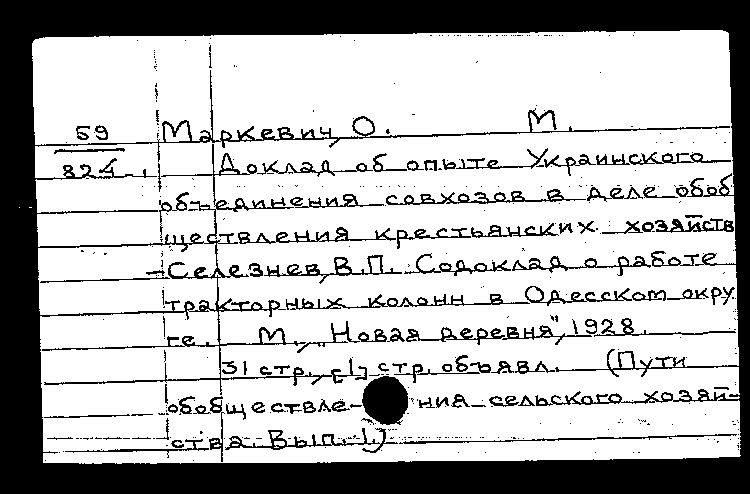 59 Маркевич, О. М.
824. Доклад об опыте Украинского
объединения совхозов в деле обоб
ществления крестьянских хозяйств
—Селезнев, В.П. Содоклад о работе
тракторных колонн в Одесском окру
ге. М., „Новая деревня", 1928.
31 стр., [1] стр. объявл. (Пути
обобществле- ния сельского хозяй-
ства. Вып. 1.)